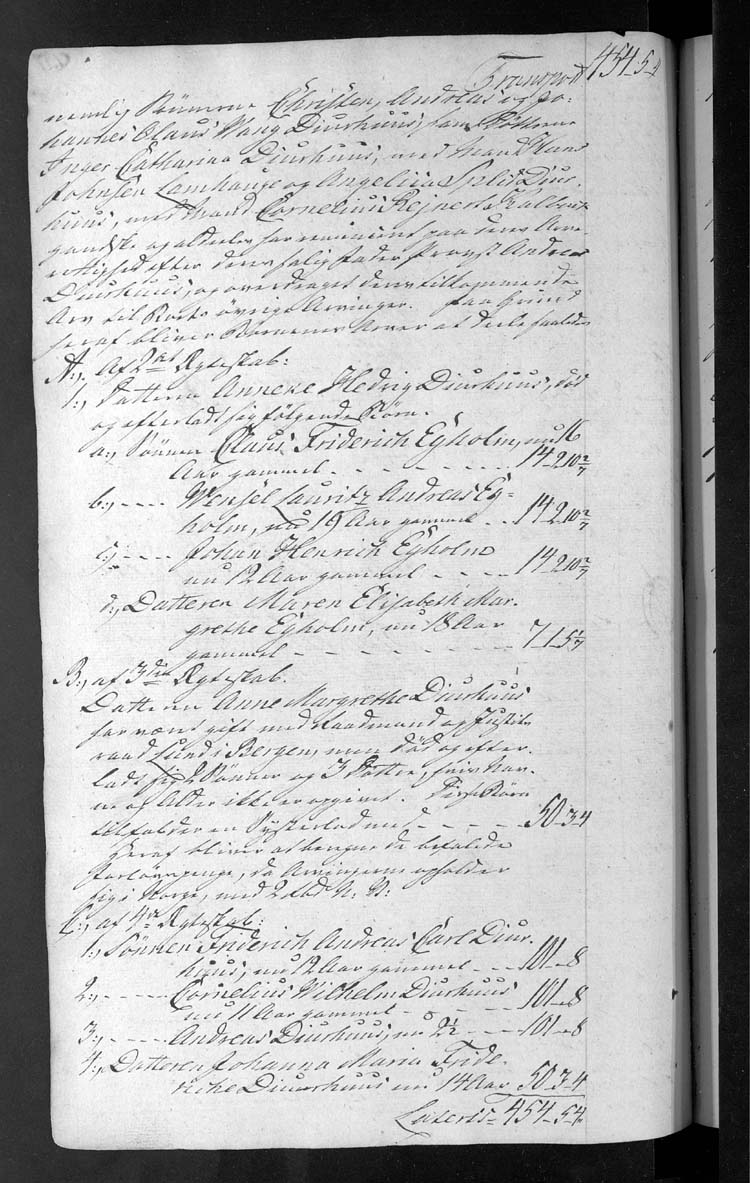 Transport 454 5 4
nemlig Sønnerne Christen, Andreas og Jo-
hannes Claus Wang Diurhuus, samt Døttrene
Inger Catharina Diurhuus, med Mand Hans
Johnsen Lamhauge og Angelica Split Diur-
huus, med Mand Cornelius Rejnert
ganske og aldeles har renunceret paa deres Arve
rettighed efter deres salig Fader Provst Andreas
Diurhuus, og overdraget deres tilkommende
Arv til Boets øvrige Arvinger. Paa Grund
heraf bliver Børnenes Arver at deele saaledes
A:, Af 2det Ægteskab:
1:, Datteren Anneke Hedvig Diurhuus, død
og efterladt sig følgende Børn.
a:, Sønnen Claus Friderich Eyholm, nu 16
Aar gammel - - - - - - 14 2 10 2/7
b:, - - - - Wensel Lauritz Andreas Ey-
holm, nu 19 Aar gammel - - 14 2 10 2/7
c:, - - - - Johan Henrich Eyholm
nu 12 Aar gammel - - - - 14 2 10 2/7
d:, Datteren Maren Elisabeth Mar-
grethe Eyholm, nu 18 Aar
gammel - - - - - - 7 1 5 1/7
B:, af 3die Ægteskab.
Datteren Anne Margrethe Diurhuus
har været gift med Raadmand og Justits
raad Lund i Bergen, men død og efter-
ladt sig 2 Sønner og 3 Døttre, hvis Nav-
ne og Alder ikke er opgivet. Disse Børn
tilfalder en Systerlod med - - - - 50 3 4
Heraf bliver at beregne de befalede
da Arvingerne opholder
sig i Norge, med
C:, af 4de Ægteskab:
1:, Sønnen Friderich Andreas Carl Diur-
huus, nu 12 Aar gammel - - - 101 " 8
2:, - - - - Cornelius Wilhelm Diurhuus
nu 11 Aar gammel - - - - 101 " 8
3:, - - - - Andreas Diurhuus, nu 2½ - - - 101 " 8
4:, Datteren Johanna Maria Fride-
riche Diurhuus nu 14 Aar 50 3 4
Lateris = 454 5 4